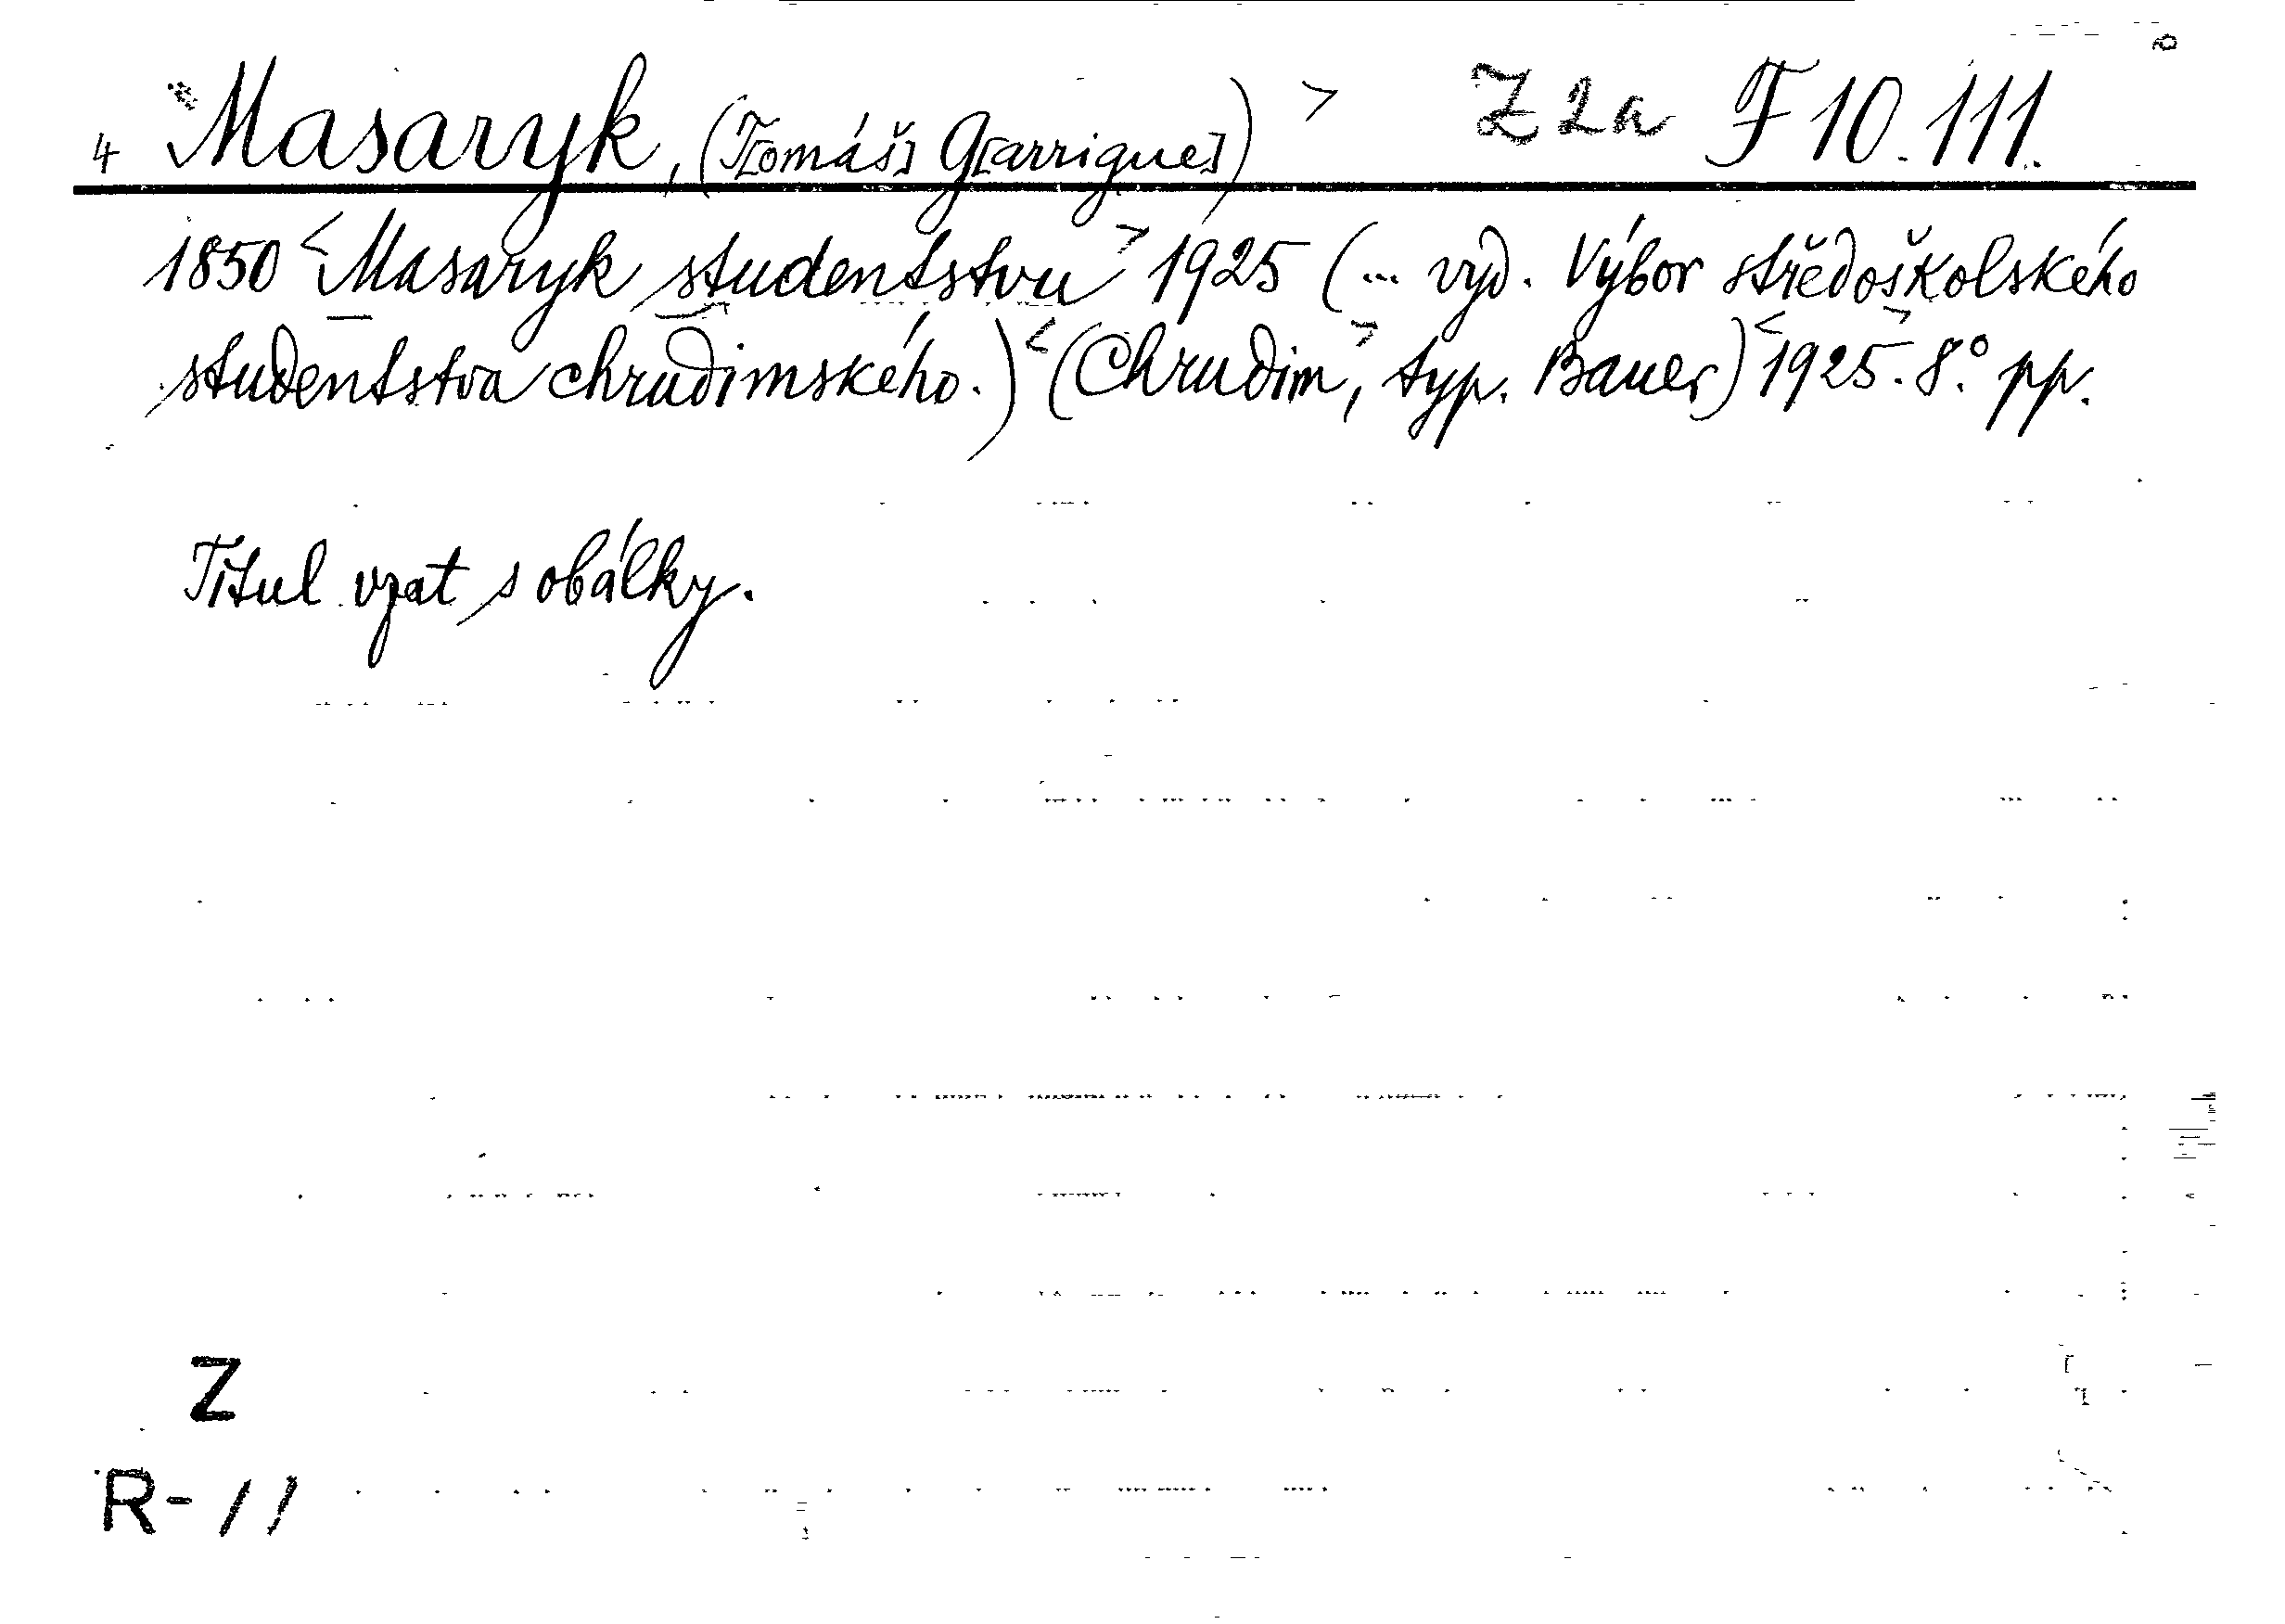 4 Masaryk, (T[omáš] G[arrigue]) > Z 2a F 10.111.
1850 <Masaryk studentstvu> 1925 (... vyd. Výbor středoškolského
studentstva chrudimského.) <(Chrudim>, typ. Bauer) <1925>. 8.° pp.
Titul vzat s obálky.
Z
R-11